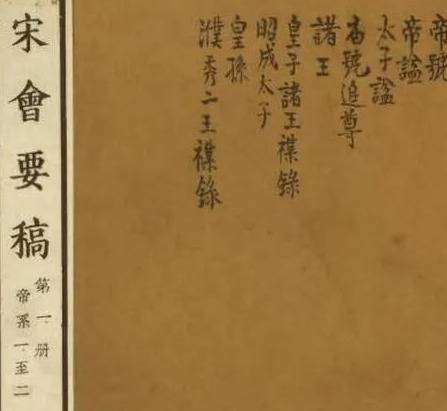 帝號
帝謚
太子謚
廟號追尊
諸王
皇子諸王襍錄
昭成太子
皇孫
濮秀二王襍錄
宋會要稿
第一册
帝系一至二